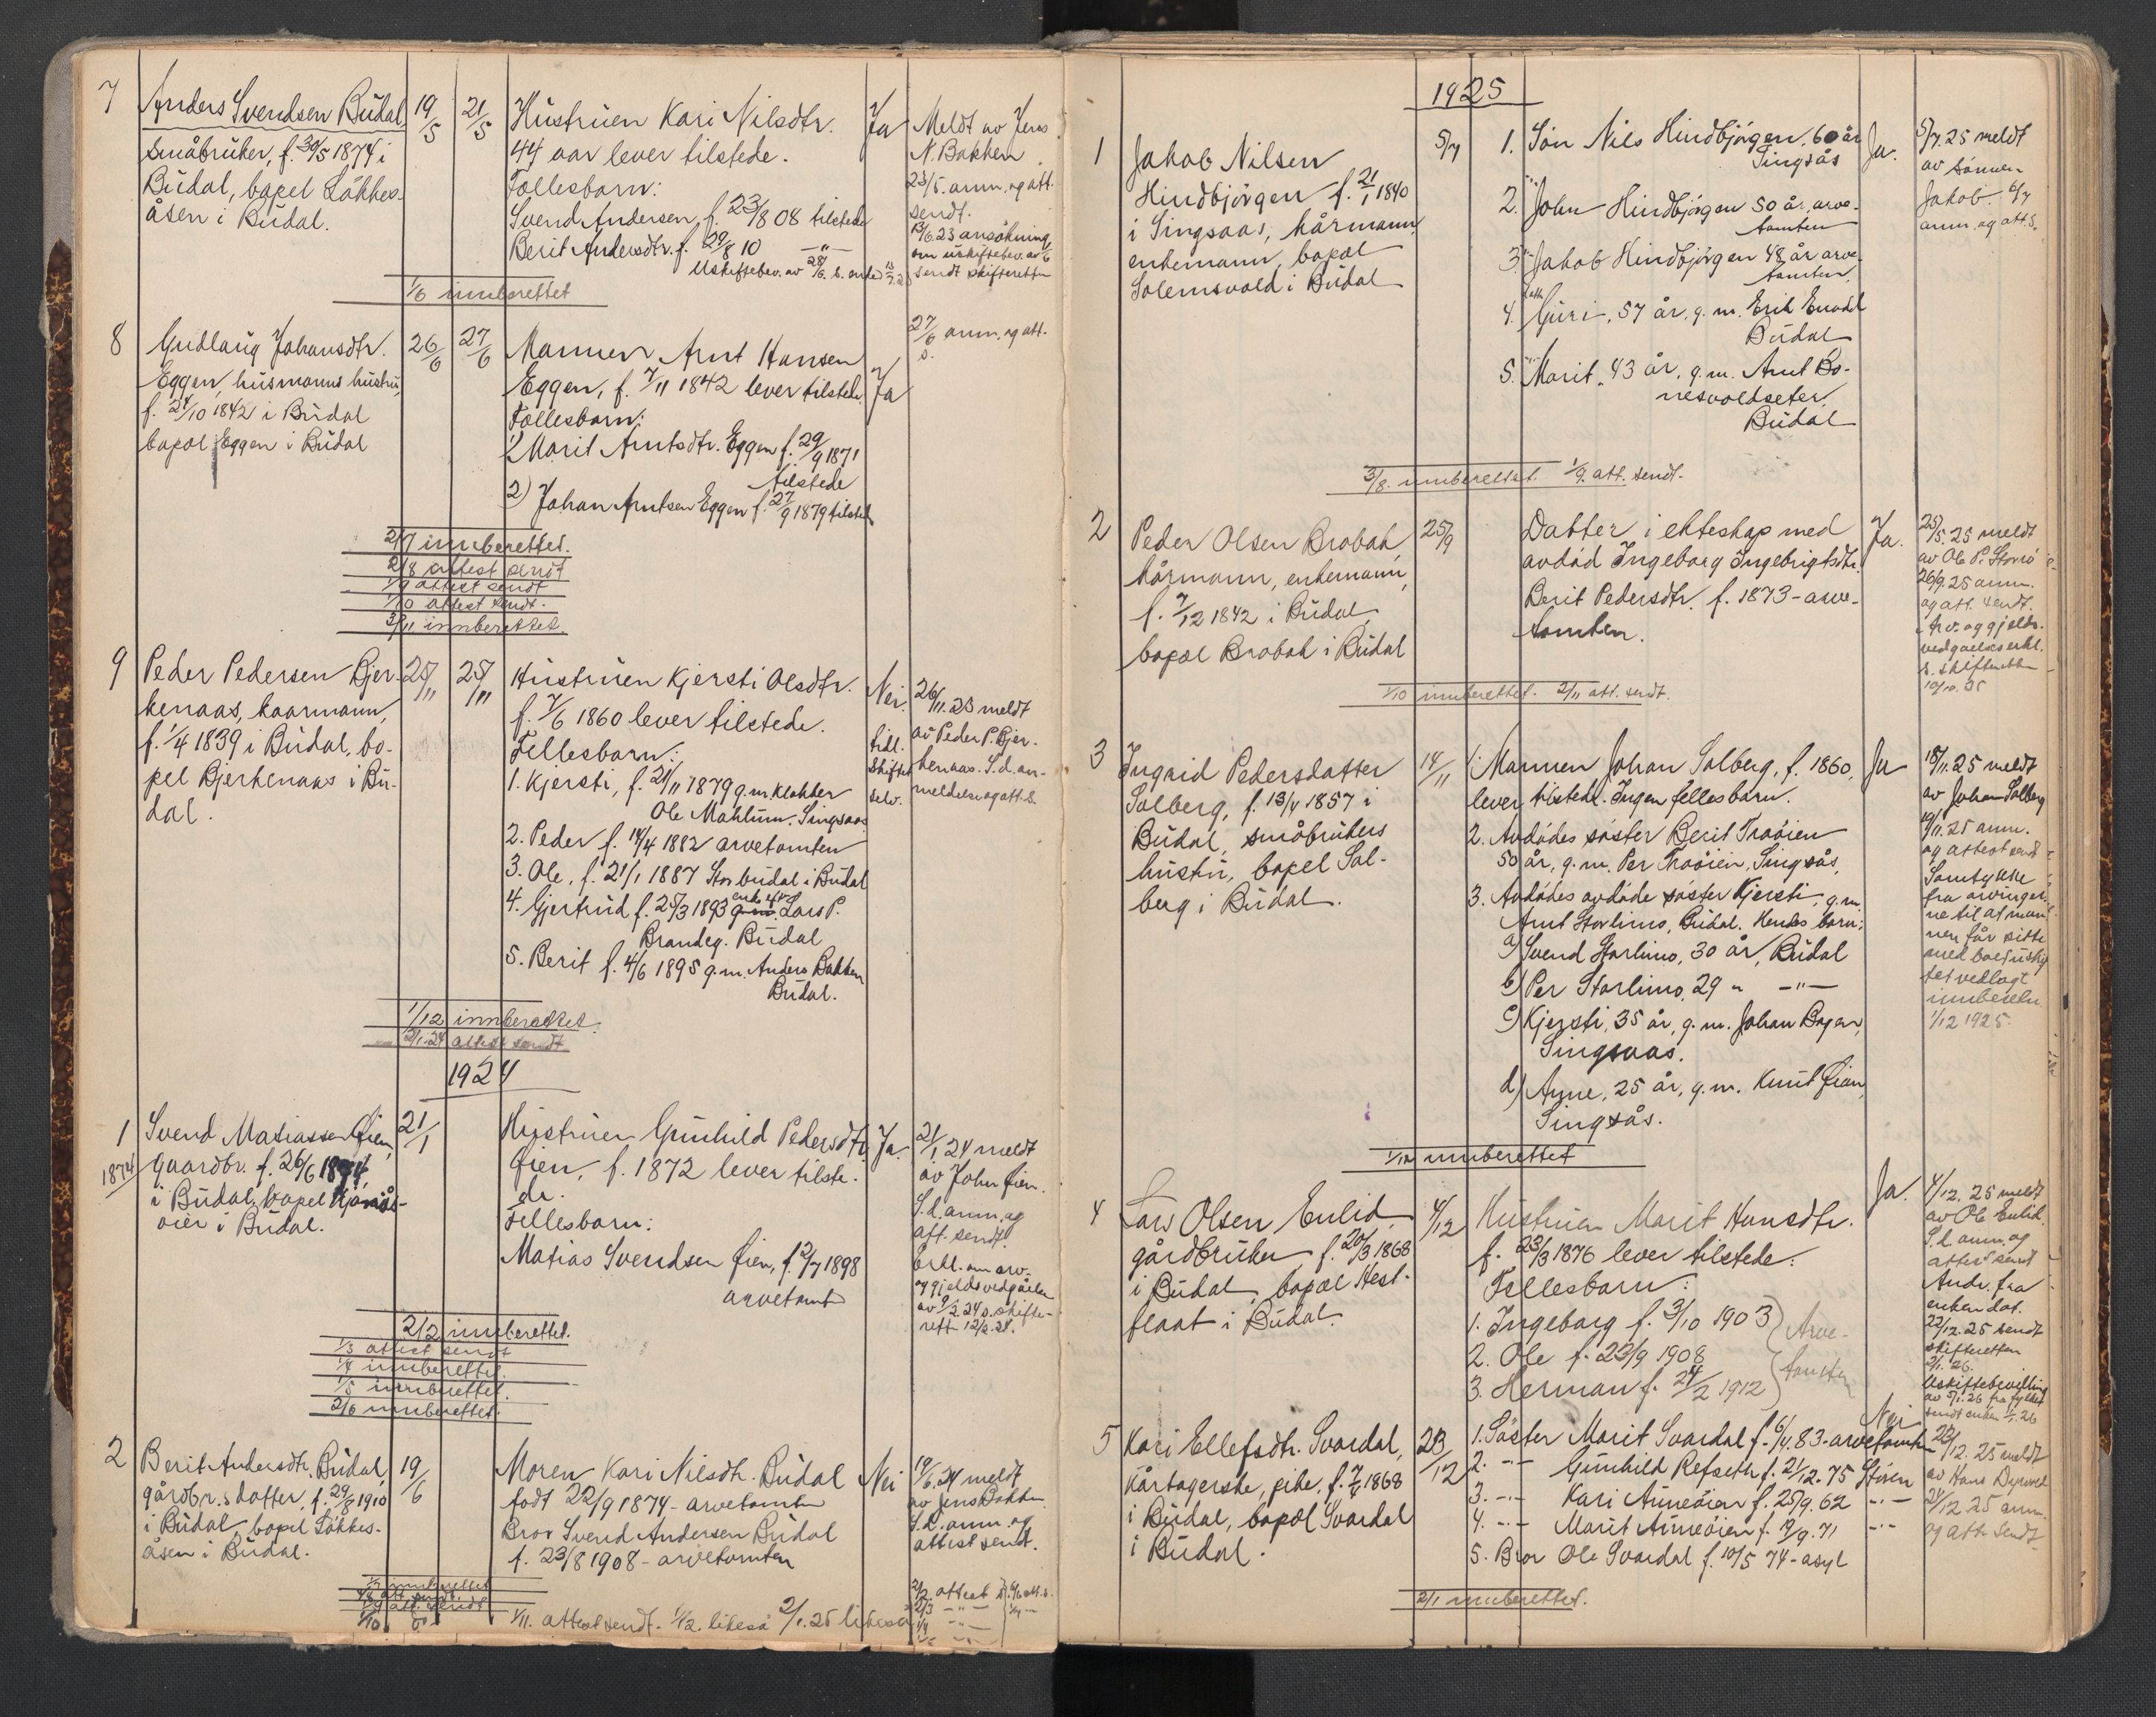 7
Anders Svendsen Budal
småbruker, f. 30/5 1874 i
Budal, bopel Løkkes-
åsen i Budal.
19/5
21/5
Hustruen Kari Nilsdtr.
44 aar lever tilstede.
Fællesbarn:
Svend Andersen, f. 23/8 08 tilstede
Berit Andersdtr. f. 29/8 10 —"—
Uskiftebev. av 28/6 s. enke
Ja
Meldt av Jens
N. Bakken
23/5. anm. og att.
sendt.
13/6.23 ansökning
om uskiftebev. av
sendt skifteretten
1/6 innberettet
8
Gudlaug Johansdtr.
Eggen, husmanns hustru,
f. 24/10 1842 i Budal
bopæl Eggen i Budal
26/6
27/6
Mannen Arnt Hansen
Eggen, f. 7/11 1842 lever tilstede.
Fællesbarn:
1) Marit Arntsdtr. Eggen f. 29/9 1871
tilstede
2) Johan Arntsen Eggen f. 27/9 1879 tilsted
Ja
27/6 anm. og att.
s.
2/7 innberettet.
2/8 attest sendt
1/9 attest sendt
1/10 attest sendt.
2/11 innberettet.
9
Peder Pedersen Bjer-
kenaas, kaarmann,
f. 1/4 1839 i Budal, bo-
pel Bjerkenaas i Bu-
dal.
25/11
25/11
Hustruen Kjersti Olsdtr.
f. 7/6 1860 lever tilstede.
Fellesbarn:
1. Kjersti, f. 21/11 1879 g. m. klokker
Ole Mahlum. Singsaas
2. Peder f. 14/4 1882 arvetomten
3. Ole, f. 21/1 1887 Storbudal i Budal
4. Gjertrud f. 25/3 1893 enke efter Lars P.
Brandeg. Budal
5. Berit f. 4/6 1895 g. m. Anders Bakken
Budal.
Nei.
tidl.
skiftet
selv.
26/11.23 meldt
av Peder P. Bjer-
kenaas. S.d. an-
meldelse og att. s.
1/12 innberettet.
2/1-24 attest sendt
1924
1
1874
Svend Matiassen Øien,
gaardbr. f. 26/6 1874,
i Budal, bopel
øien i Budal.
21/1
Hustruen Gunhild Pedersdtr.
Øien, f. 1872 lever tilste-
de.
Fellesbarn:
Matias Svendsen Øien, f. 2/7 1898
arvetomt
Ja.
21/1 24 meldt
av John Øien.
S.d. anm. og
att. sendt.
Erkl. om arv-
og gjeldsvedgåelse
av 9/2 24 s. skifte-
rett 12/2.24.
2/2 innberettet.
1/3 attest sendt
1/4 innberettet.
1/5 innberettet.
2/6 innberettet.
2
Berit Andersdtr. Budal,
gårdbr.s datter, f. 29/8 1910
i Budal, bopel Løkkes-
åsen i Budal.
19/6
Moren Kari Nilsdtr. Budal
født 22/9 1874 - arvetomten
Bror Svend Andersen Budal
f. 23/8 1908 - arvetomten
Nei
19/6.24 meldt
av Jens Bakken
S.d. anm. og
attest sendt.
1/7 innberettet
1/8 att. sendt.
1/9 att. sendt
1/10
1/11. attest sendt. 1/12. likeså 2/1.25 likeså
2/2. attest s.
2/3 —"—
1/4 —"—
1925
1
Jakob Nilsen
Hindbjørgen f. 21/1 1840
i Singsaas, kårmann,
enkemann, bopæl
Solemsvold i Budal
5/7
1. Søn Nils Hindbjørgen, 60 år
Singsås
2. " John Hindbjørgen 50 år, arve-
tomten
3. " Jakob Hindbjørgen 48 år arve-
tomten.
4. datt. Guri, 57 år, g. m. Erik Enodd
Budal
5. " Marit, 43 år, g. m. Arnt Bo-
nesvoldseter.
Budal
Ja.
5/7. 25 meldt
av sønnen
Jakob. 6/7
anm. og att. s.
3/8. innberettet. 1/9. att. sendt.
2
Peder Olsen Brobak,
kårmann, enkemann,
f. 7/12 1842 i Budal,
bopæl Brobak i Budal
25/9
Datter i ekteskap med
avdød Ingeborg Ingebrigtsdtr.
Berit Pedersdtr. f. 1873 - arve-
tomten.
Ja.
25/9. 25 meldt
av Ole P. Storrø
26/9. 25 anm.
og att. sendt.
Arv. og gjelds-
vedgåelses erkl.
s. skifteretten
10/10. 25
1/10 innberettet. 2/11 att. sendt.
3
Ingrid Pedersdatter
Solberg, f. 13/4 1857 i
Budal, småbrukers
hustru, bopel Sol-
berg i Budal.
14/11
1. Mannen Johan Solberg, f. 1860,
lever tilstede. Ingen fellesbarn.
2. Avdødes søster Berit Traøien
50 år, g. m. Per Traøien, Singsås,
3. Avdødes avdøde søster Kjersti, g. m.
Arnt Storlimo, Budal. Hendes barn:
a) Svend Storlimo, 30 år, Budal
b) Per Storlimo, 29 " —"—
c) Kjersti, 35 år, g. m. Johan Bogen,
Singsaas.
d) Anne, 25 år, g. m. Knut Øian,
Singsås.
Ja
18/11. 25 meldt
av Johan Solberg
19/11. 25 anm.
og attest sendt
Samtykke
fra arvinger-
ne til at man-
nen får sitte
med boet uskif-
tet vedlagt
innberetn.
1/12 1925.
1/12 innberettet
4
Lars Olsen Enlid,
gårdbruker f. 20/3 1868
i Budal, bopæl Hest-
flaat i Budal.
4/12
Hustruen Marit Hansdtr.
f. 23/3 1876 lever tilstede.
Fellesbarn:
1. Ingeborg f. 3/10 1903
2. Ole f. 23/9 1908
3. Herman f. 24/2 1912
Arve-
tomten
Ja.
4/12. 25 meldt
av Ole Enlid.
S.d. anm. og
attest sendt
Andr. fra
enken dat.
22/12. 25 sendt
skifteretten
2/1. 26.
Uskiftebevilling
av 5/1. 26 fra fylket
sendt enken
5
Kari Ellefsdtr. Svardal,
kårtagerske, pike, f. 7/4 1868
i Budal, bopæl Svardal
i Budal.
23/12
1. Søster Marit Svardal f. 6/4. 83 - arvetomten
2. —"— Gunhild Refseth f. 21/12. 75 Støren
3. —"— Kari Aunøien f. 25/9. 62 —"—
4. —"— Marit Aunøien f. 19/9. 71 —"—
5. Bror Ole Svardal f. 10/5 74 - asyl
Nei
23/12. 25 meldt
av Hans
24/12 25 anm.
og att. sendt
2/1 innberettet.